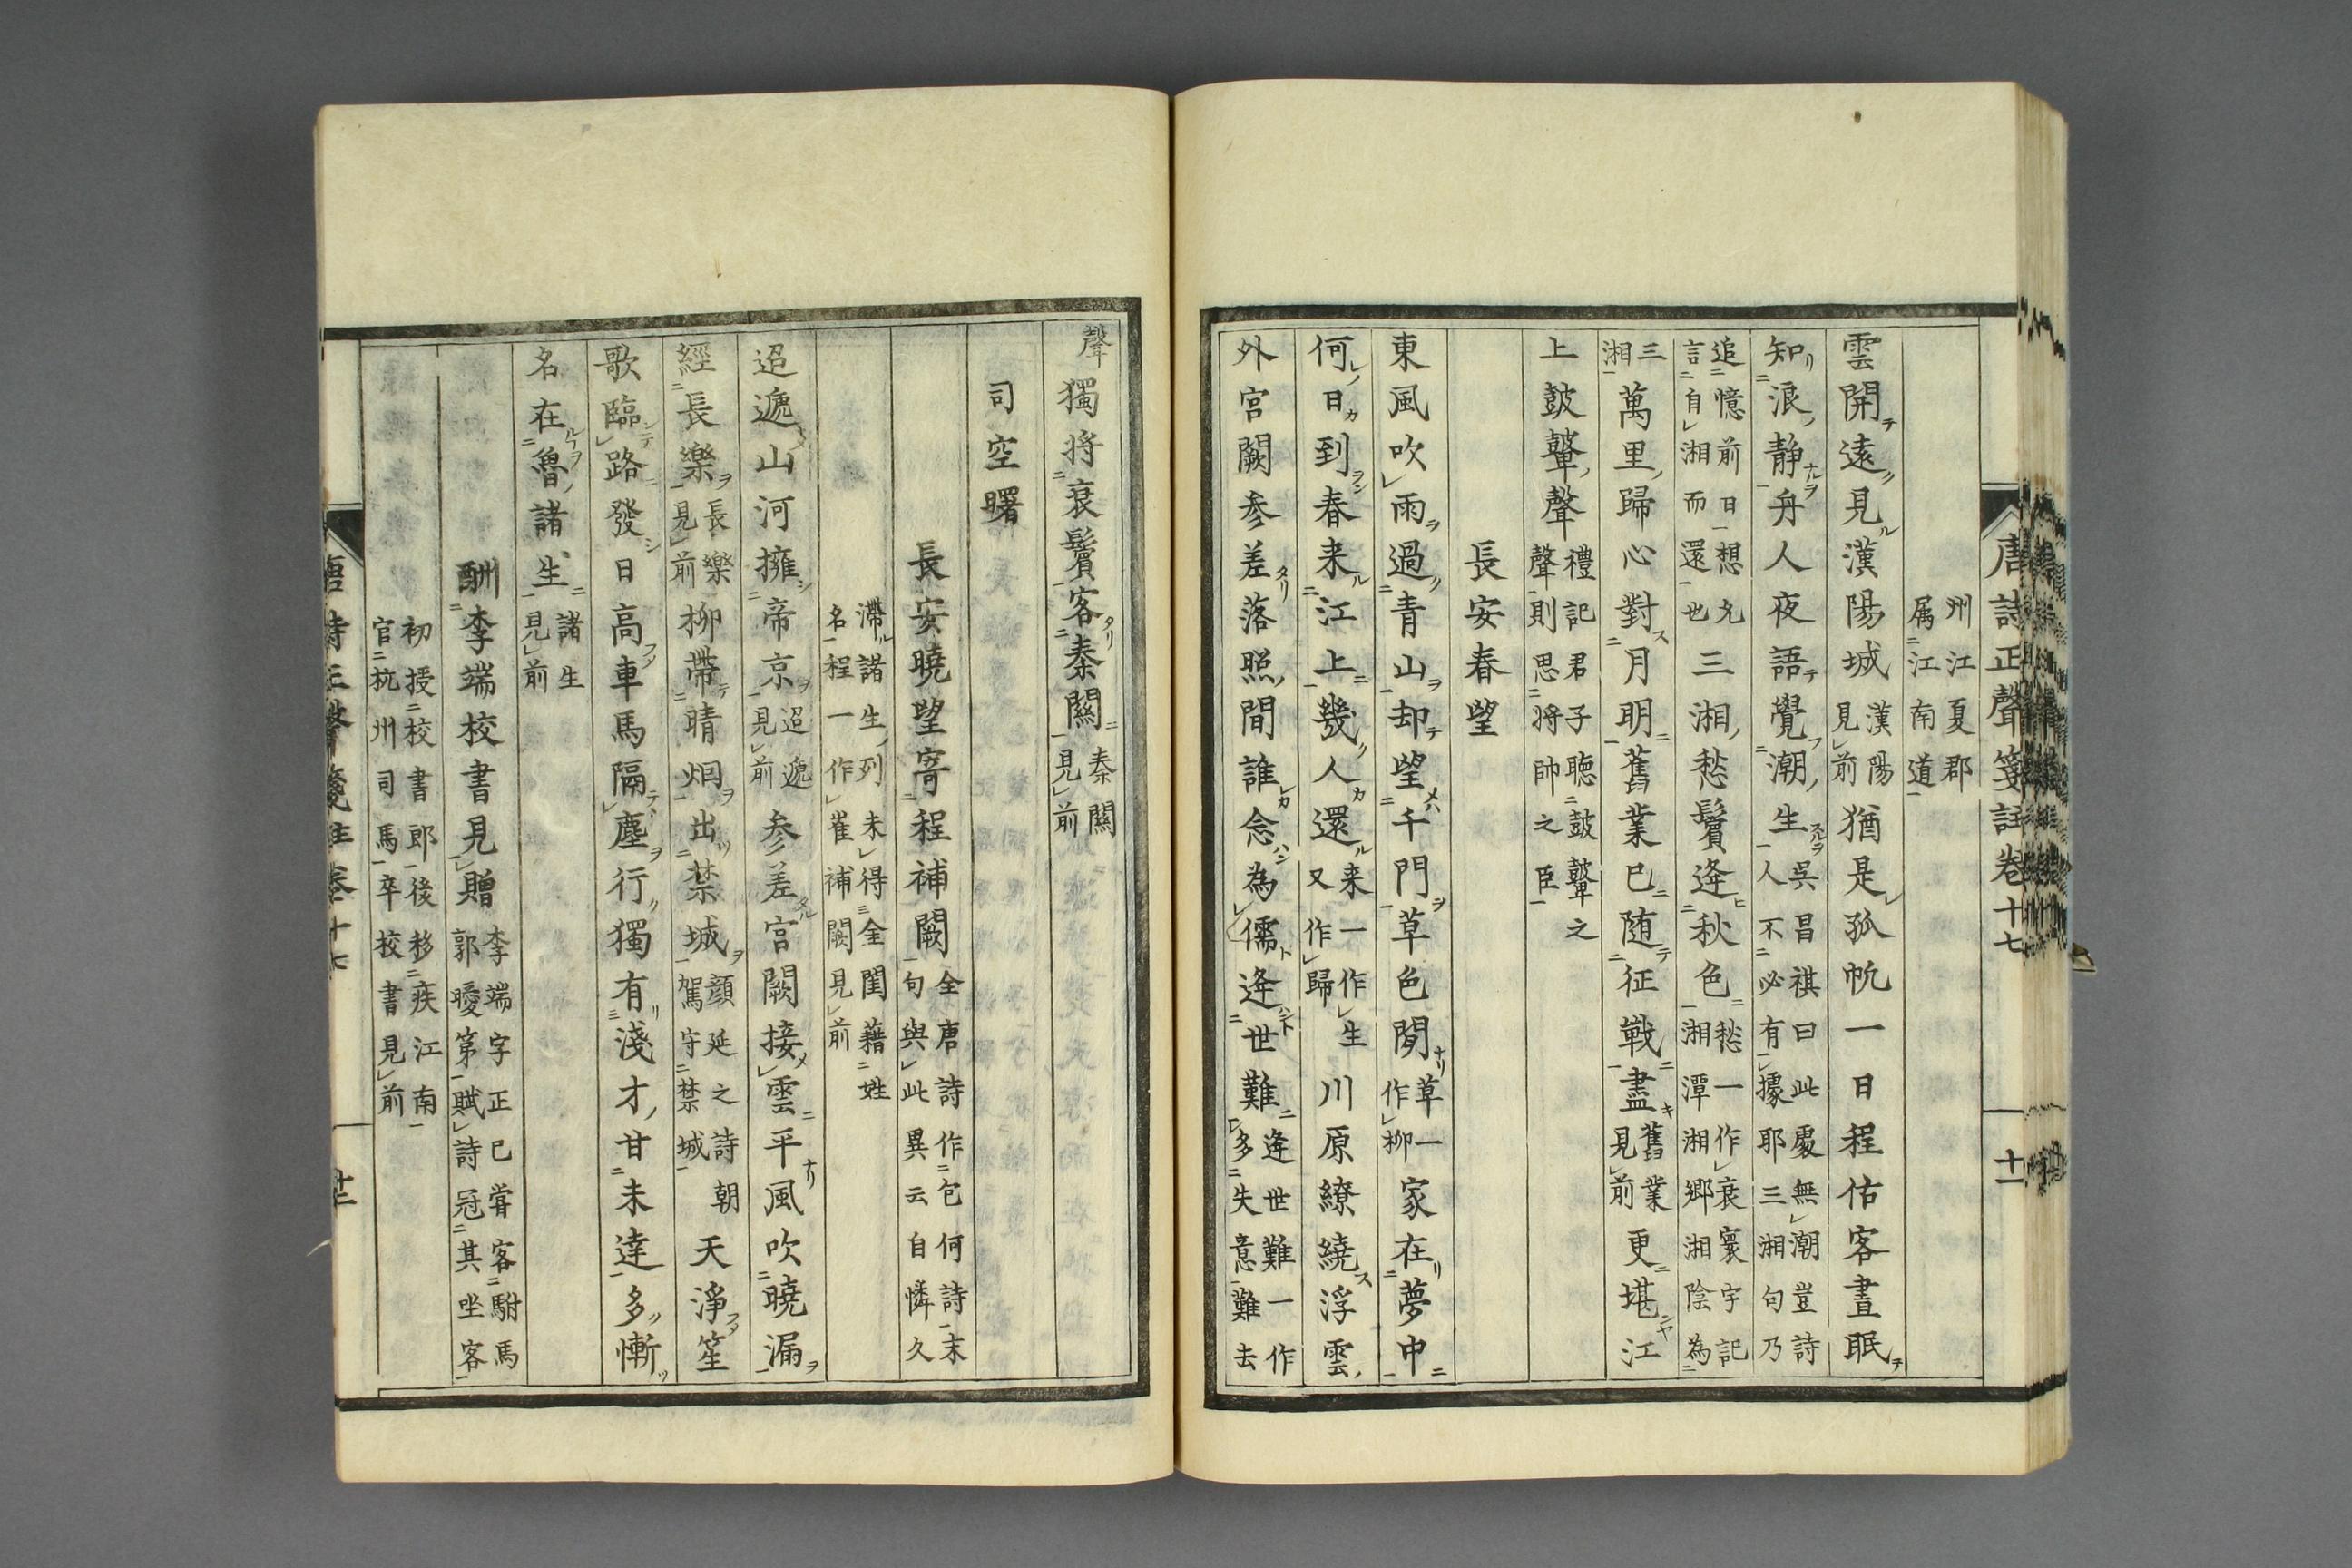 唐詩正聲箋註卷十七
十一
州江夏郡
属江南道
雲開遠見漢陽城
漢陽
見前
猶是孤帆一日程估客晝眠
知浪静舟人夜語覺潮生
吳昌祺曰此處無潮豈詩
人不必有據耶三湘句乃
追憶前日想
言自湘而還也
三湘愁鬢逢秋色
愁一作衰寰宇記
湘潭湘鄉湘陰為
三
湘
萬里歸心對月明舊業已随征戰盡
舊業
見前
更堪江
上鼓鼙聲
禮記君子聽鼓鼙之
聲則思將帥之臣
長安春望
東風吹雨過青山却望千門草色閒
草一
作柳
家在夢中
何日到春来江上幾人還
来一作生
又作歸
川原繚繞浮雲
外宮闕参差落照間誰念為儒逢世難
逢世難一作
多失意難去
聲
獨将衰鬢客秦關
秦關
見前
司空曙
長安曉望寄程補闕
全唐詩作包何詩末
句與此異云自憐久
滯諸生列未得金閨藉姓
名程一作崔補闕見前
迢遞山河擁帝京
迢遞
見前
参差宮闕接雲平風吹曉漏
經長樂
長樂
見前
柳帶晴烟出禁城
顔延之詩朝
駕守禁城
天淨笙
歌臨路發日高車馬隔塵行獨有淺才甘未達多慚
名在魯諸生
諸生
見前
酬李端校書見贈
李端字正已甞客駙馬
郭曖第賦詩冠其坐客
初授校書郎後移疾江南
官杭州司馬卒校書見前
唐詩正聲箋註卷十七
十二